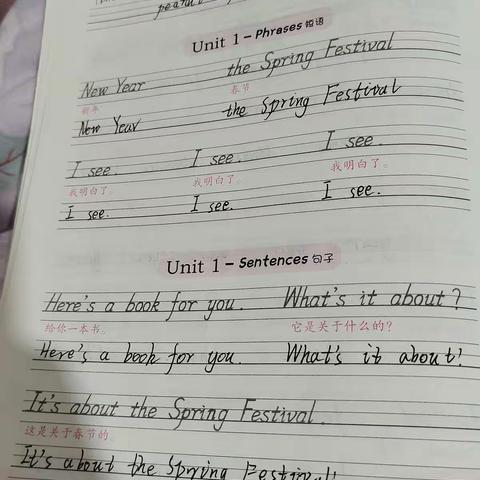 Unit 1 - Phrases 短语
New Year the Spring Festival
新年 春节
New Year the Spring Festival
I see. I see. I see.
我明白了。 我明白了。 我明白了。
I see. I see. I see.
Unit 1 - Sentences 句子
Here's a book for you. What's it about?
给你一本书。 它是关于什么的?
Here's a book for you. What's it about?
It's about the Spring Festival.
这是关于春节的。
It's about the Spring Festival